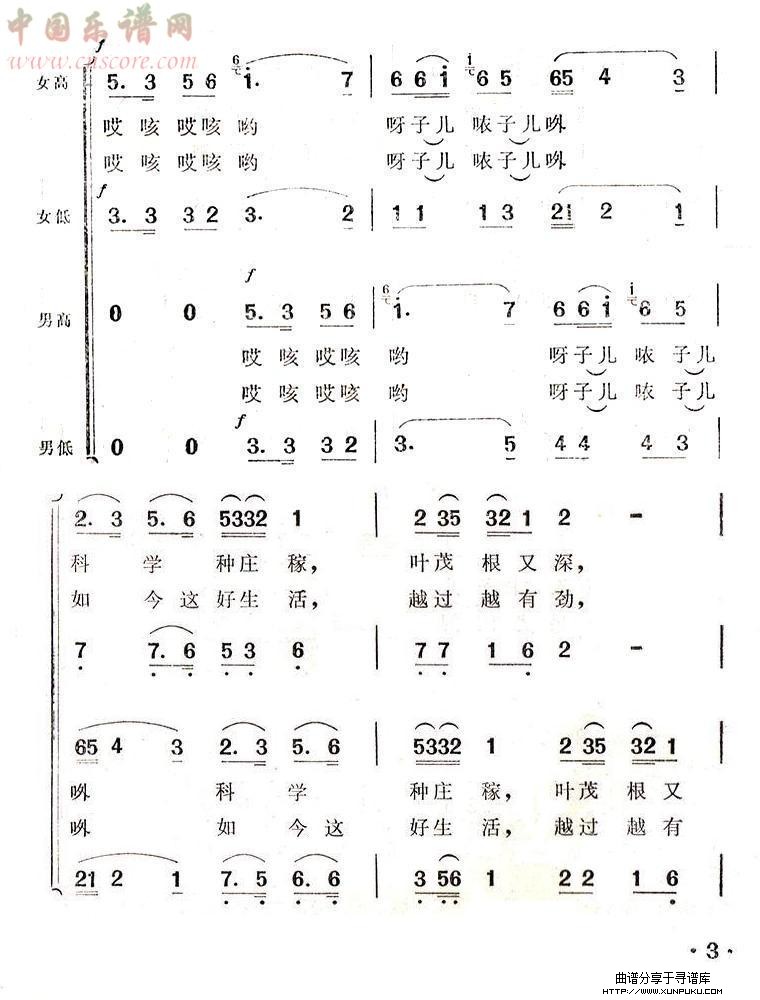 中国乐谱网
www.cnscore.com
f
女高 5. 3 5 6 6 i. 7 | 6 6 i i 6 5 65 4 3 |
哎咳哎咳哟 呀子儿哝子儿咻
哎咳哎咳哟 呀子儿哝子儿咻
f
女低 3. 3 3 2 3. 2 | 1 1 1 3 21 2 1 |
f
男高 0 0 5. 3 5 6 | 6 i. 7 6 6 i i 6 5 |
哎咳哎咳哟 呀子儿哝子儿
哎咳哎咳哟 呀子儿哝子儿
f
男低 0 0 3. 3 3 2 | 3. 5 4 4 4 3 |
2. 3 5. 6 5332 1 | 2 35 32 1 2 - |
科学种庄稼，叶茂根又深，
如今这好生活，越过越有劲，
7 7. 6 5 3 6 | 7 7 1 6 2 - |
65 4 3 2. 3 5. 6 | 5332 1 2 35 32 1 |
咻科学种庄稼，叶茂根又
咻如今这好生活，越过越有
21 2 1 7. 5 6. 6 | 3 56 1 2 2 1 6 |
· 3 ·
曲谱分享于寻谱库
HTTP://WWW.XUNPUKU.COM